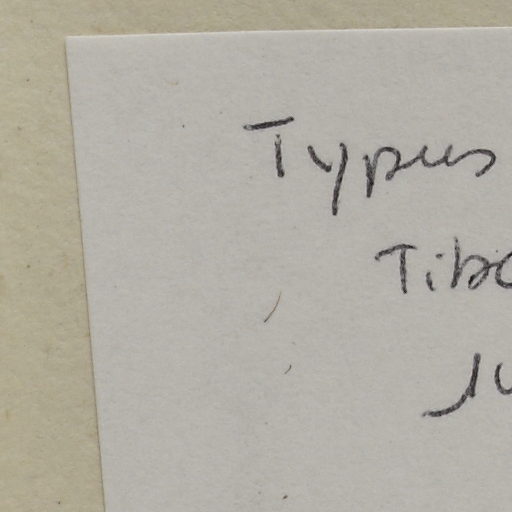 Typus
Tibe
Ju